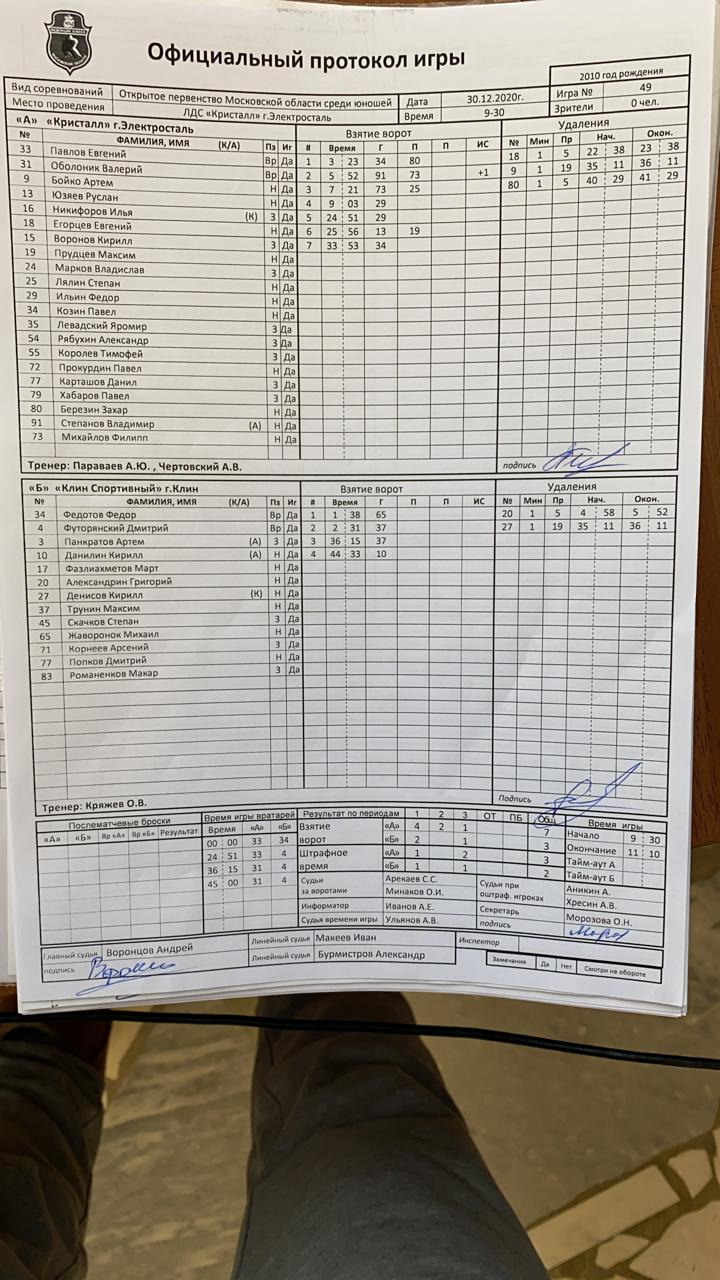 Официальный протокол игры
2010 год рождения
Вид соревнований Открытое первенство Московской области среди юношей Дата 30.12.2020г. Игра № 49
Место проведения ЛДС «Кристалл» г.Электросталь Время 9-30 Зрители 0 чел.
«А» «Кристалл» г.Электросталь Взятие ворот Удаления
№ ФАМИЛИЯ, ИМЯ (К/А) Пз Иг # Время Г П П ИС № Мин Пр Нач. Окон.
33 Павлов Евгений Вр Да 1 3 23 34 80 18 1 5 22 38 23 38
31 Оболоник Валерий Вр Да 2 5 52 91 73 +1 9 1 19 35 11 36 11
9 Бойко Артем Н Да 3 7 21 73 25 80 1 5 40 29 41 29
13 Юзяев Руслан Н Да 4 9 03 29
16 Никифоров Илья (К) З Да 5 24 51 29
18 Егорцев Евгений Н Да 6 25 56 13 19
15 Воронов Кирилл З Да 7 33 53 34
19 Прудцев Максим Н Да
24 Марков Владислав З Да
25 Лялин Степан Н Да
29 Ильин Федор Н Да
34 Козин Павел Н Да
35 Левадский Яромир З Да
54 Рябухин Александр З Да
55 Королев Тимофей З Да
72 Прокурдин Павел Н Да
77 Карташов Данил З Да
79 Хабаров Павел З Да
80 Березин Захар Н Да
91 Степанов Владимир (А) Н Да
73 Михайлов Филипп Н Да
Тренер: Параваев А.Ю. , Чертовский А.В. подпись
«Б» «Клин Спортивный» г.Клин Взятие ворот Удаления
№ ФАМИЛИЯ, ИМЯ (К/А) Пз Иг # Время Г П П ИС № Мин Пр Нач. Окон.
34 Федотов Федор Вр Да 1 1 38 65 20 1 5 4 58 5 52
4 Футорянский Дмитрий Вр Да 2 2 31 37 27 1 19 35 11 36 11
3 Панкратов Артем (А) З Да 3 36 15 37
10 Данилин Кирилл (А) Н Да 4 44 33 10
17 Фазлиахметов Март Н Да
20 Александрин Григорий Н Да
27 Денисов Кирилл (К) Н Да
37 Трунин Максим Н Да
45 Скачков Степан З Да
65 Жаворонок Михаил Н Да
71 Корнеев Арсений З Да
77 Попков Дмитрий Н Да
83 Романенков Макар З Да
Тренер: Кряжев О.В. Подпись
Послематчевые броски Время игры вратарей Результат по периодам 1 2 3 ОТ ПБ Общ Время игры
«А» «Б» Вр «А» Вр «Б» Результат Время «А» «Б» Взятие «А» 4 2 1 7 Начало 9 30
00 00 33 34 ворот «Б» 2 1 3 Окончание 11 10
24 51 33 4 Штрафное «А» 1 2 3 Тайм-аут А
36 15 31 4 время «Б» 1 1 2 Тайм-аут Б
45 00 31 4 Судьи за воротами Арекаев С.С. Судьи при оштраф. игроках Аникин А.
Минаков О.И. Хресин А.В.
Информатор Иванов А.Е. Секретарь Морозова О.Н.
Судья времени игры Ульянов А.В. подпись
Главный судья Воронцов Андрей Линейный судья Макеев Иван Инспектор
подпись Линейный судья Бурмистров Александр Замечания Да Нет Смотри на обороте